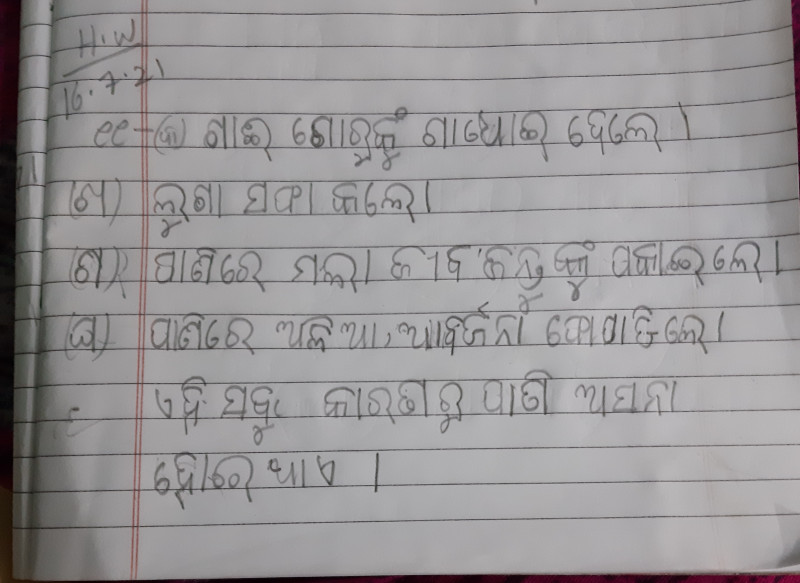 H.W
16.7.21
୧୧-(କ) ଗାଈ ଗୋରୁଙ୍କୁ ଗାଧୋଇ ଦେଲେ ।
(ଖ) ଲୁଗା ସଫା କଲେ ।
(ଗ) ପାଣିରେ ମଲା ଜୀବଜନ୍ତୁଙ୍କୁ ପକାଇଲେ ।
(ଘ) ପାଣିରେ ଅଳିଆ, ଆବର୍ଜନା ଫୋପାଡିଲେ ।
ଏହି ସବୁ କାରଣରୁ ପାଣି ଅସନା
ହୋଇଥାଏ ।